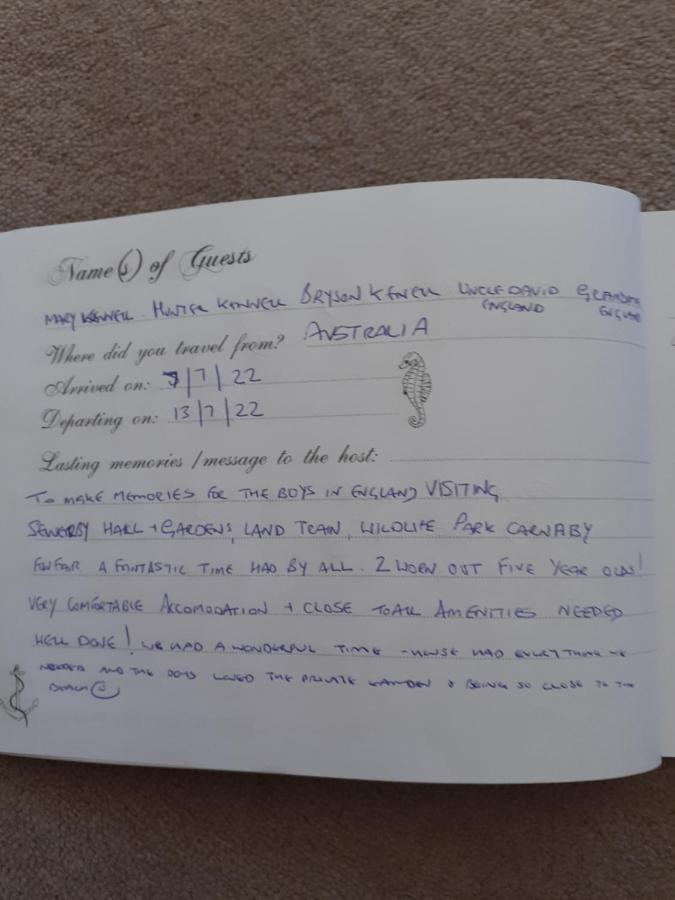 Name(s) of Guests
MARY KENNELL HUNTER KENNELL BRYSON KENNELL UNCLE DAVID
ENGLAND
Where did you travel from? AUSTRALIA
Arrived on: /7/22
Departing on: 13/7/22
Lasting memories / message to the host:
TO MAKE MEMORIES FOR THE BOYS IN ENGLAND VISITING
SEWERBY HALL + GARDENS, LAND TRAIN, WILDLIFE PARK CARNABY
FUNFAIR A FANTASTIC TIME HAD BY ALL. 2 WORN OUT FIVE YEAR OLDS!
VERY COMFORTABLE ACCOMODATION + CLOSE TO ALL AMENITIES NEEDED
WELL DONE! WE HAD A WONDERFUL TIME - HOUSE HAD EVERYTHING WE
NEEDED AND THE BOYS LOVED THE PRIVATE GARDEN & BEING SO CLOSE TO THE
BEACH